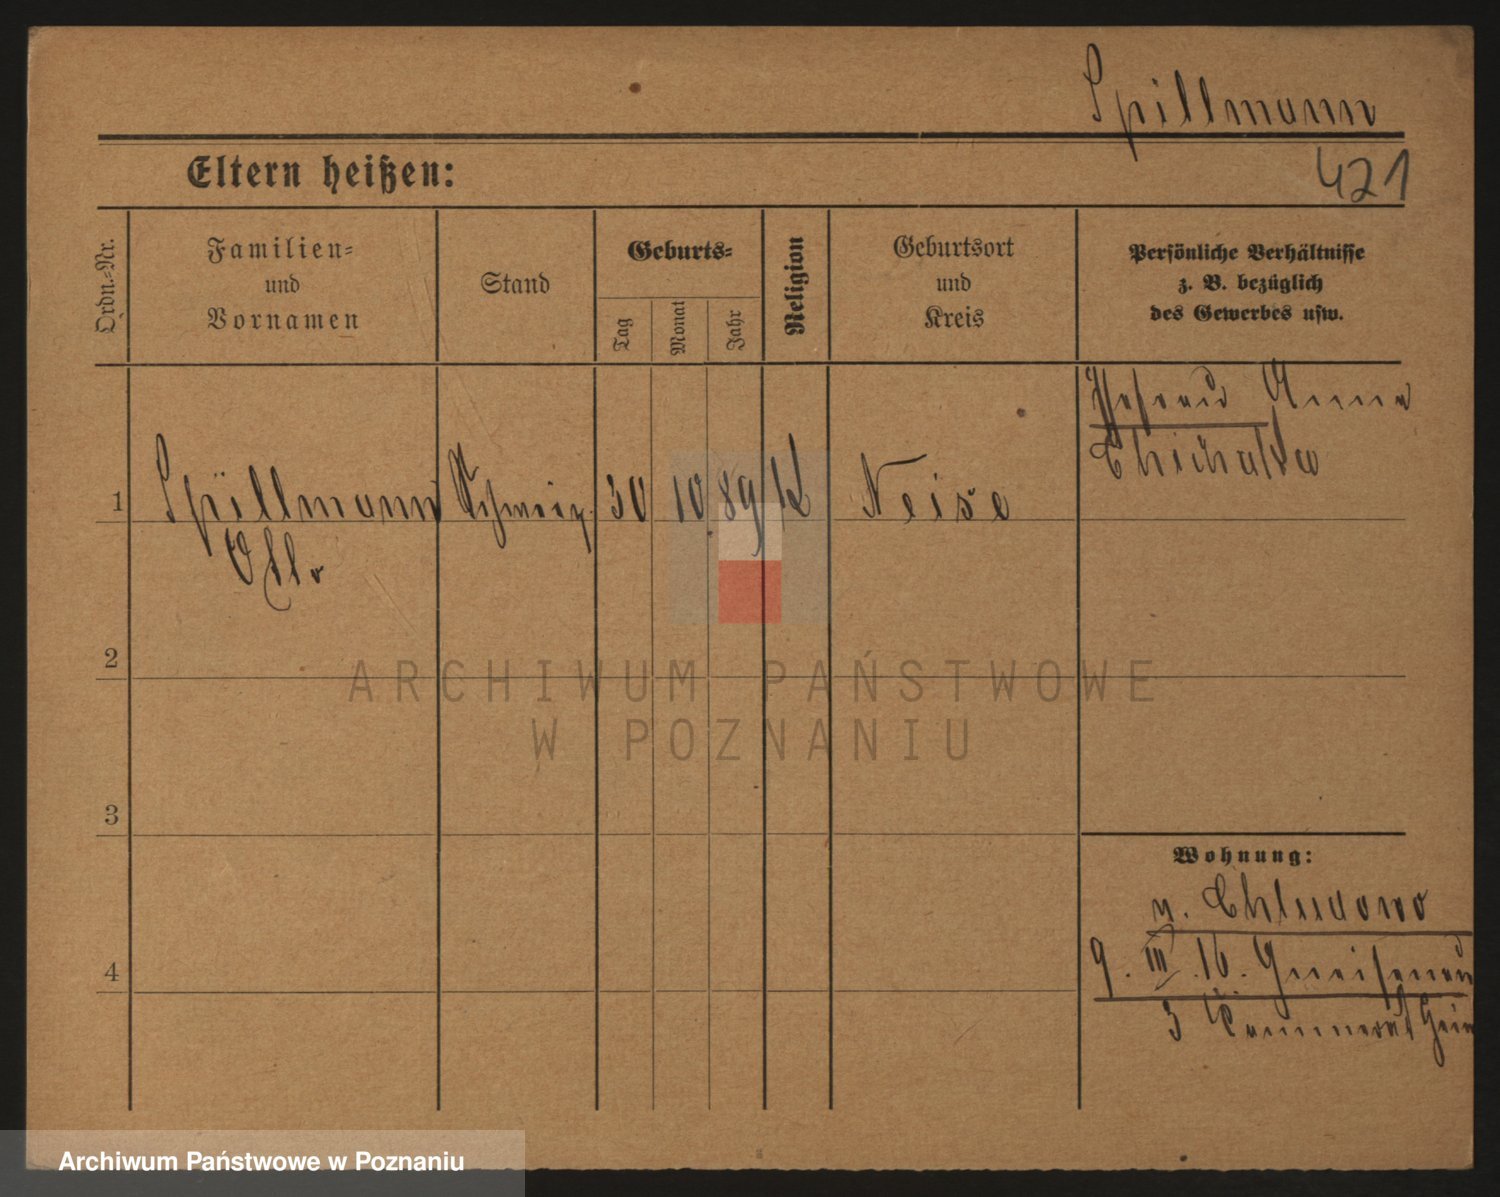 Spillmann
421
Eltern heißen:
Ordn.-Nr.
Familien-
und
Vornamen
Stand
Geburts-
Tag
Monat
Jahr
Religion
Geburtsort
und
Kreis
Persönliche Verhältnisse
z. B. bezüglich
des Gewerbes usw.
1
Spillmann
Otto
30
10
89
K
Neise
Ehefrau Anna
2
3
4
Wohnung:
n. Chludowo
9. III. 16. Gneisenau
3
ARCHIWUM PAŃSTWOWE
W POZNANIU
Archiwum Państwowe w Poznaniu